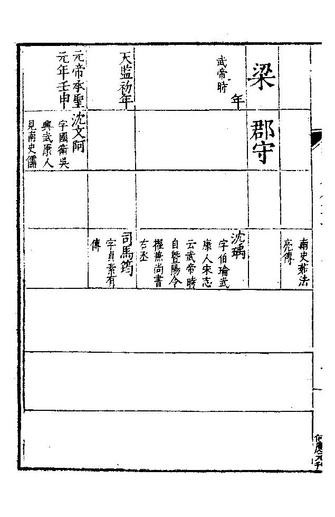 梁
郡守
南史蔡法
亮傳
武帝時
年
沈瑀
字伯瑜武
康人宋志
云武帝時
自暨陽令
擢兼尚書
右丞
天監初年
司馬筠
字貞素有
傳
元帝承聖
元年壬申
沈文阿
字國衛吳
興武康人
見南史儒